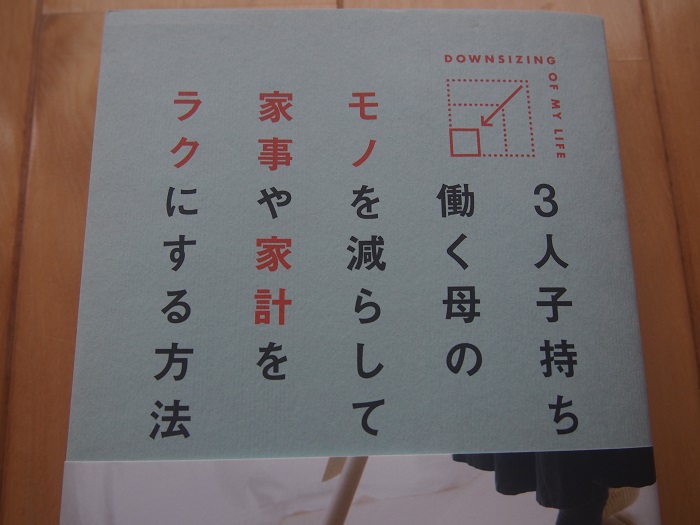 DOWNSIZING
OF MY LIFE
3人子持ち
働く母の
モノを減らして
家事や家計を
ラクにする方法